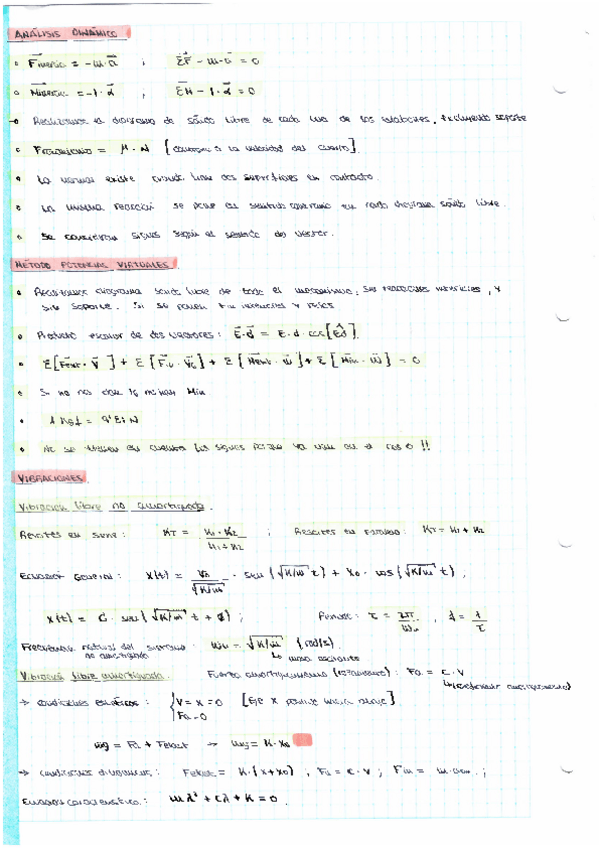 ANÁLISIS DINÁMICO
• F⃗inercia = -m·a⃗ ; ΣF⃗ - m·a⃗ = 0
• M⃗inercia = -I·α⃗ , ΣM⃗ - I·α⃗ = 0
• Realizamos el diagrama de sólido libre de cada uno de los eslabones, excluyendo soporte
• Frozamiento = μ·N [contrario a la velocidad del cuerpo].
• La normal existe cuando hay dos superficies en contacto.
• La misma reacción se pone en sentido contrario en cada diagrama sólido libre.
• Se consideran signos según el sentido del vector.
MÉTODO POTENCIAS VIRTUALES.
• Realizamos diagrama sólido libre de todo el mecanismo, sin reacciones interiores, y sin soporte. Si se ponen fza inerciales y pesos
• Producto escalar de dos vectores: E⃗·d⃗ = E·d·cos[E͡d].
• Σ[F⃗ext·V⃗] + Σ[F⃗in·V⃗G] + Σ[M⃗ext·ω⃗] + Σ[M⃗in·ω⃗] = 0
• Si no nos dan IG no hay Min
• 1 kgf = 9'81 N
• No se tienen en cuenta los signos porque ya viene en el cos θ !!
VIBRACIONES.
Vibración libre no amortiguada.
Resortes en serie: KT = K1·K2 / K1+K2 ; Resortes en paralelo: KT = K1 + K2
Ecuación general: x(t) = V0/√K/m · sen(√K/m t) + X0 · cos(√K/m t) ;
x(t) = C · sen(√K/m t + ϕ) ; Periodo: τ = 2π/ωn , f = 1/τ
Frecuencia natural del sistema no amortiguado : ωn = √K/m (rad/s).
↳ masa oscilante
Vibración libre amortiguada. Fuerza amortiguamiento (rozamiento): Fa = c·v
↳ (coeficiente amortiguamiento)
→ Condiciones estáticas: { V = x = 0 [Eje x positivo hacia abajo]
Fa = 0
mg = Fa + Felast → mg = K·x0
→ Condiciones dinámicas: Felast = K·(x+x0) , Fa = c·v ;
Ecuación característica: mλ² + cλ + K = 0.